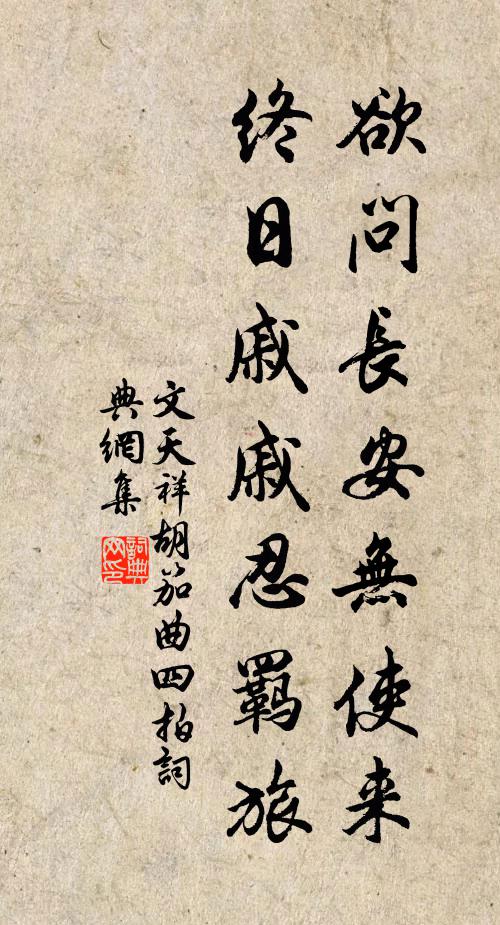 欲問長安無使来
終日戚戚忍羈旅
文天祥胡笳曲四拍詞
典網集
詞典網印